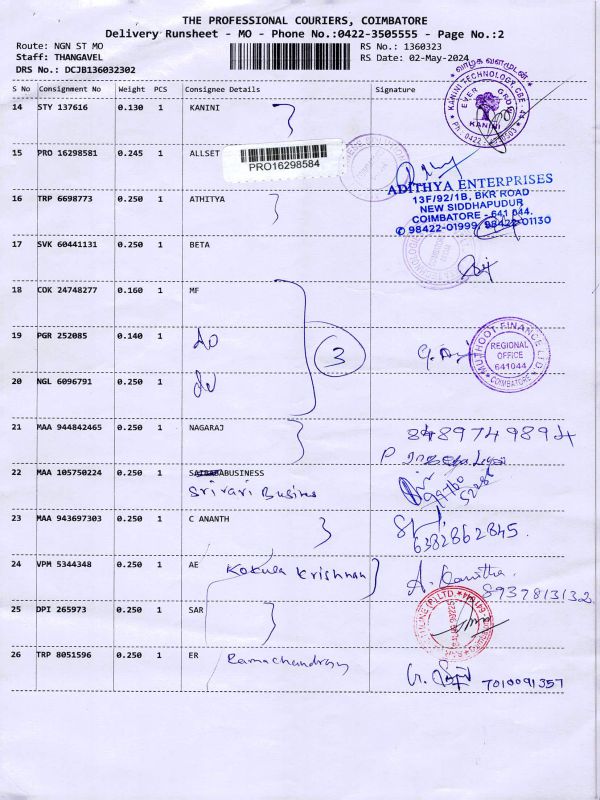 THE PROFESSIONAL COURIERS, COIMBATORE
Delivery Runsheet - MO - Phone No.:0422-3505555 - Page No.:2
Route: NGN ST MO
RS No.: 1360323
Staff: THANGAVEL
RS Date: 02-May-2024
DRS No.: DCJB136032302
வாழ்க வளமுடன்
KANINI TECHNOLOGY, CBE
EVER GROW
KANINI
S No Consignment No Weight PCS Consignee Details Signature
14 STY 137616 0.130 1 KANINI
15 PRO 16298581 0.245 1 ALLSET
PRO16298584
ADITHYA ENTERPRISES
13F/92/1B, BKR ROAD
NEW SIDDHAPUDUR
COIMBATORE - 641 044.
✆ 98422-01999, 98422-01130
16 TRP 6698773 0.250 1 ATHITYA
17 SVK 60441131 0.250 1 BETA
18 COK 24748277 0.160 1 MF
19 PGR 252085 0.140 1 do
3
MUTHOOT FINANCE LTD.
REGIONAL
OFFICE
641044
COIMBATORE
20 NGL 6096791 0.250 1 do
21 MAA 944842465 0.250 1 NAGARAJ
22 MAA 105750224 0.250 1 BUSINESS
Srivari Busines
23 MAA 943697303 0.250 1 C ANANTH
6382862845
24 VPM 5344348 0.250 1 AE Kokula Krishnan
A. Kavitha
8937813132
25 DPI 265973 0.250 1 SAR
26 TRP 8051596 0.250 1 ER Ramachandran
7010091357